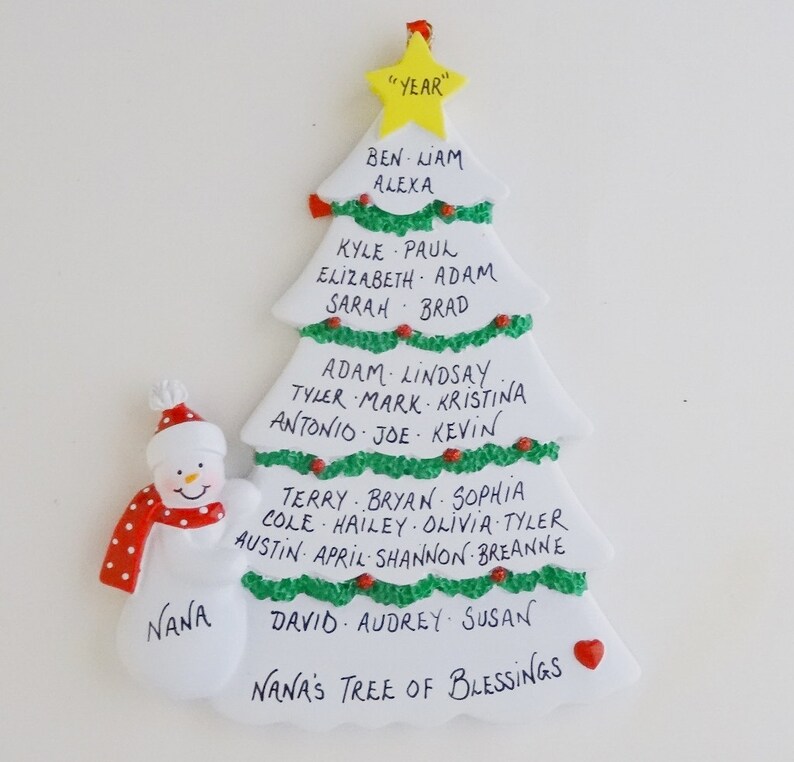 "YEAR"
BEN · LIAM
ALEXA
KYLE · PAUL
ELIZABETH · ADAM
SARAH · BRAD
ADAM · LINDSAY
TYLER · MARK · KRISTINA
ANTONIO · JOE · KEVIN
TERRY · BRYAN · SOPHIA
COLE · HAILEY · OLIVIA · TYLER
AUSTIN · APRIL · SHANNON · BREANNE
NANA
DAVID · AUDREY · SUSAN
NANA'S TREE OF BLESSINGS